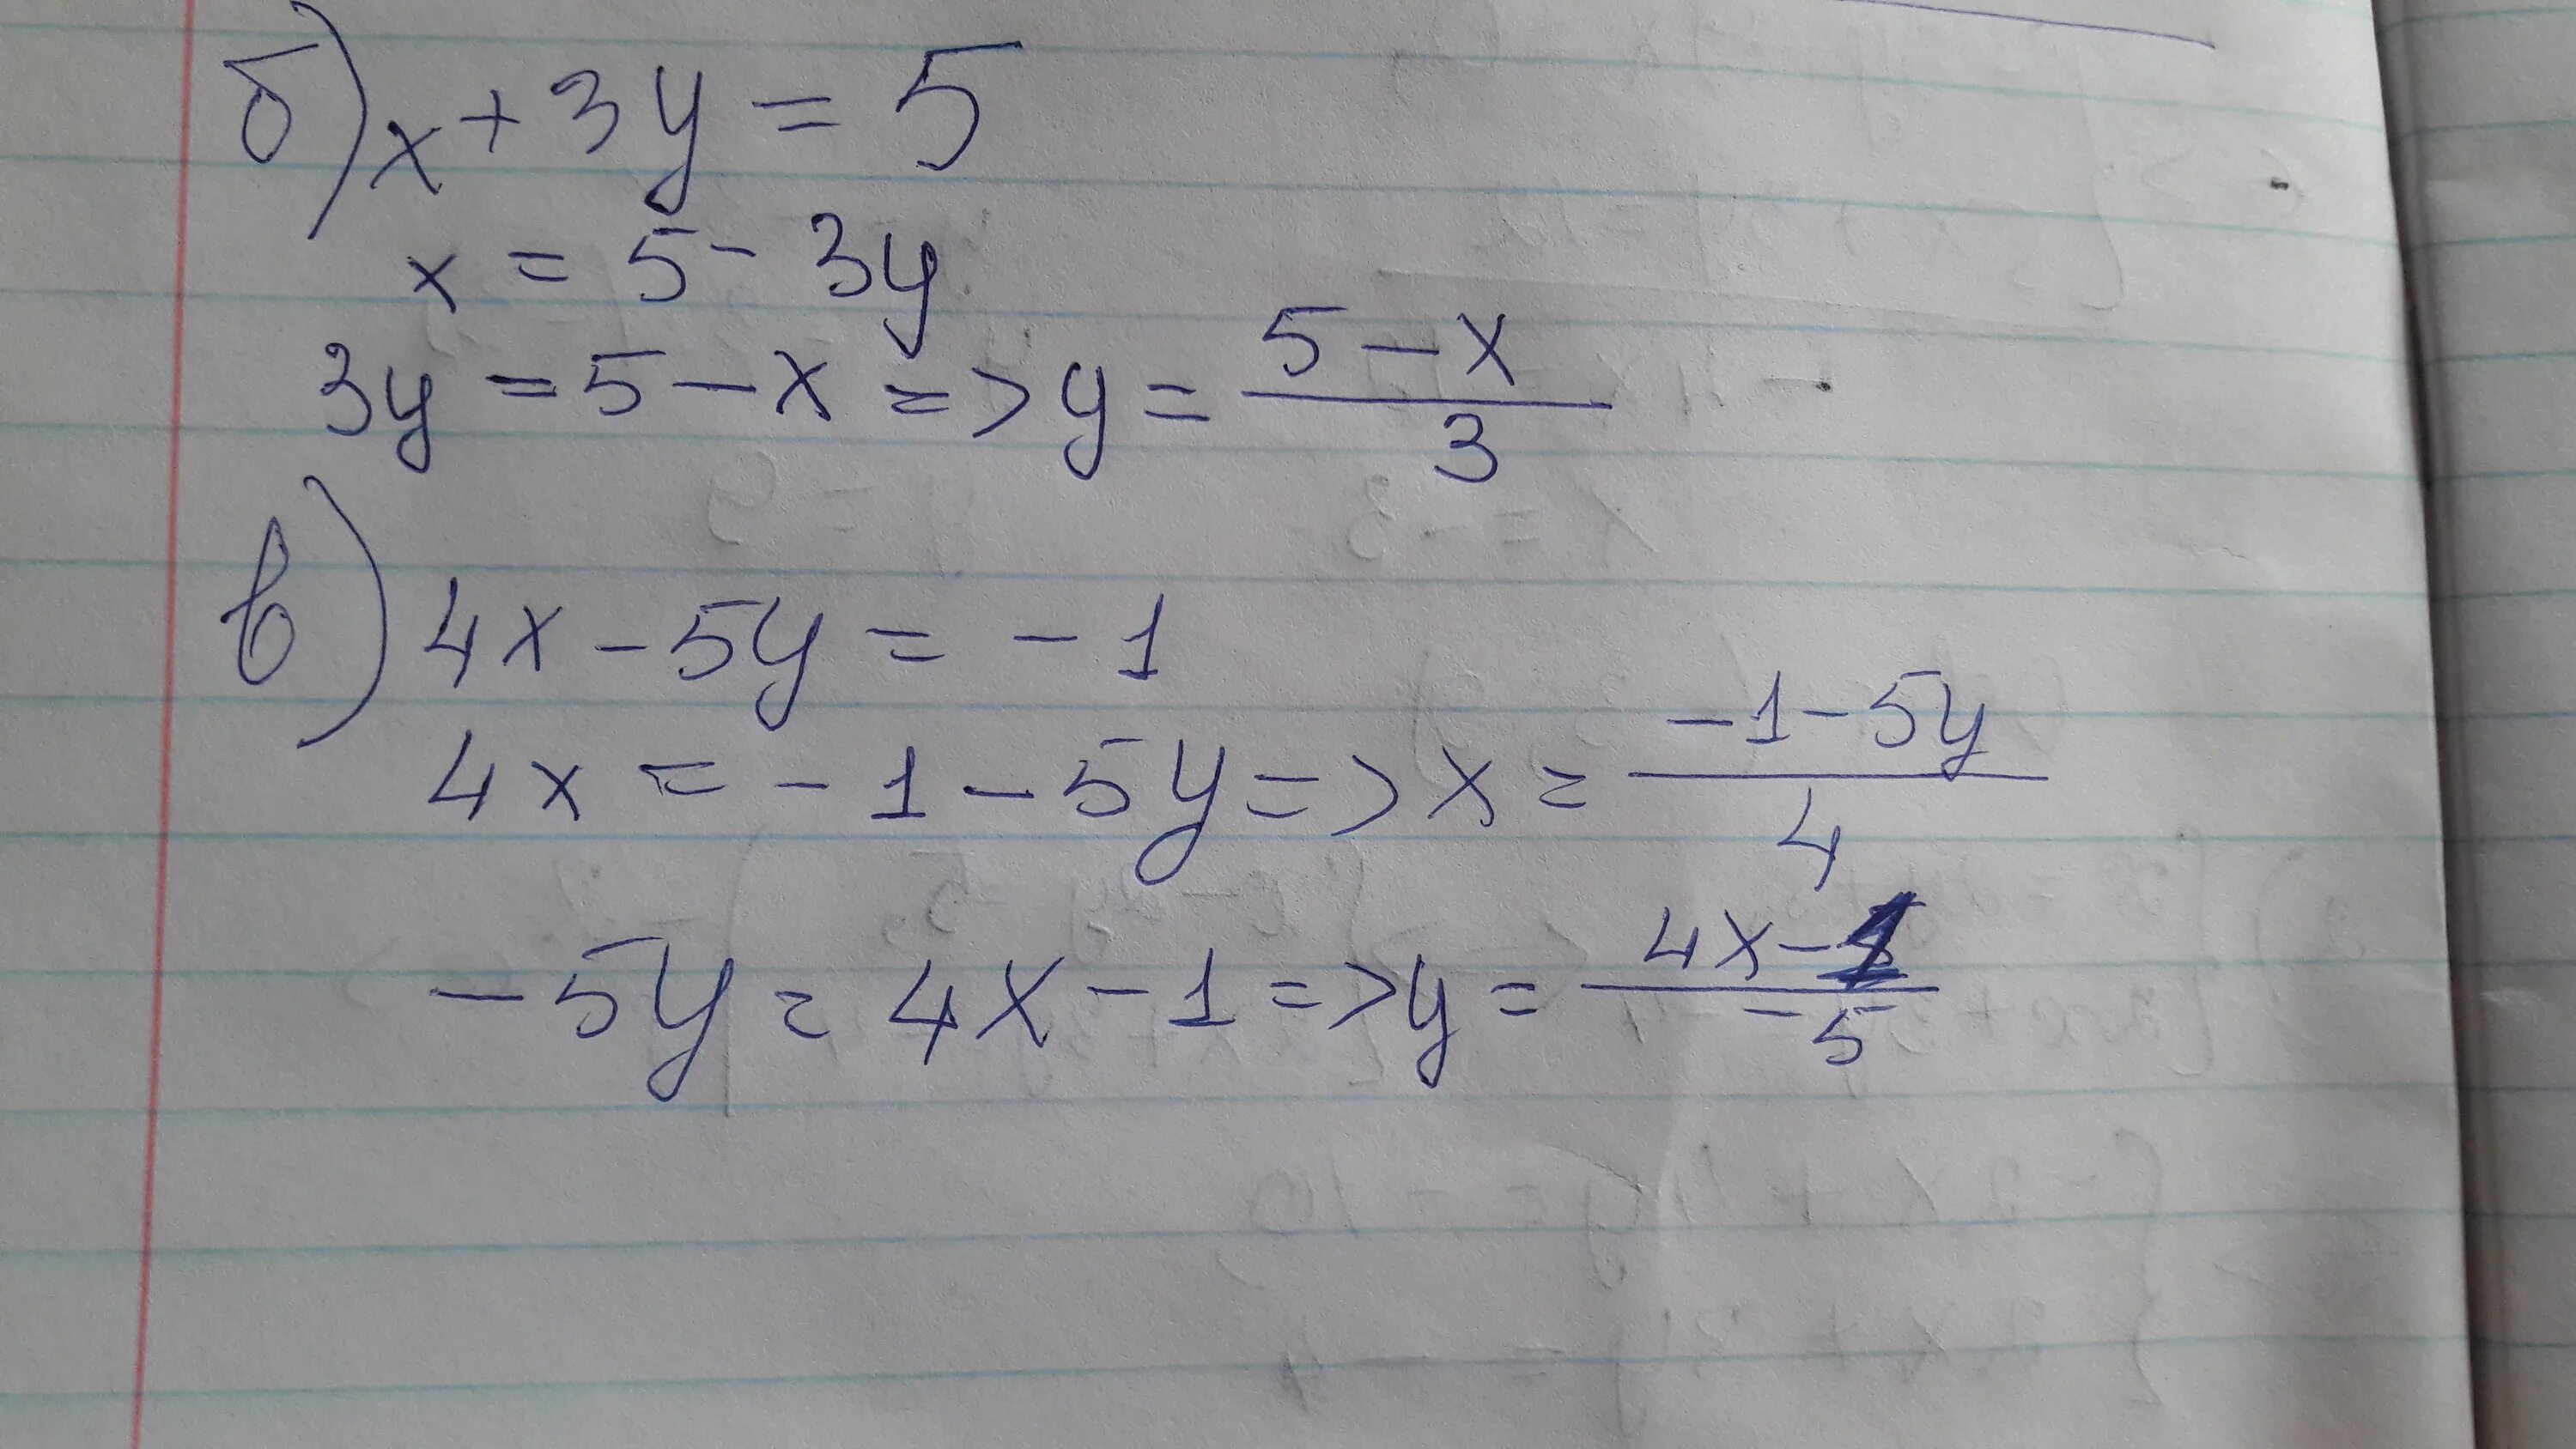 б) x + 3y = 5
x = 5 - 3y
3y = 5 - x => y = (5 - x)/3
в) 4x - 5y = -1
4x = -1 - 5y => x = (-1 - 5y)/4
-5y = 4x - 1 => y = (4x - 1)/(-5)